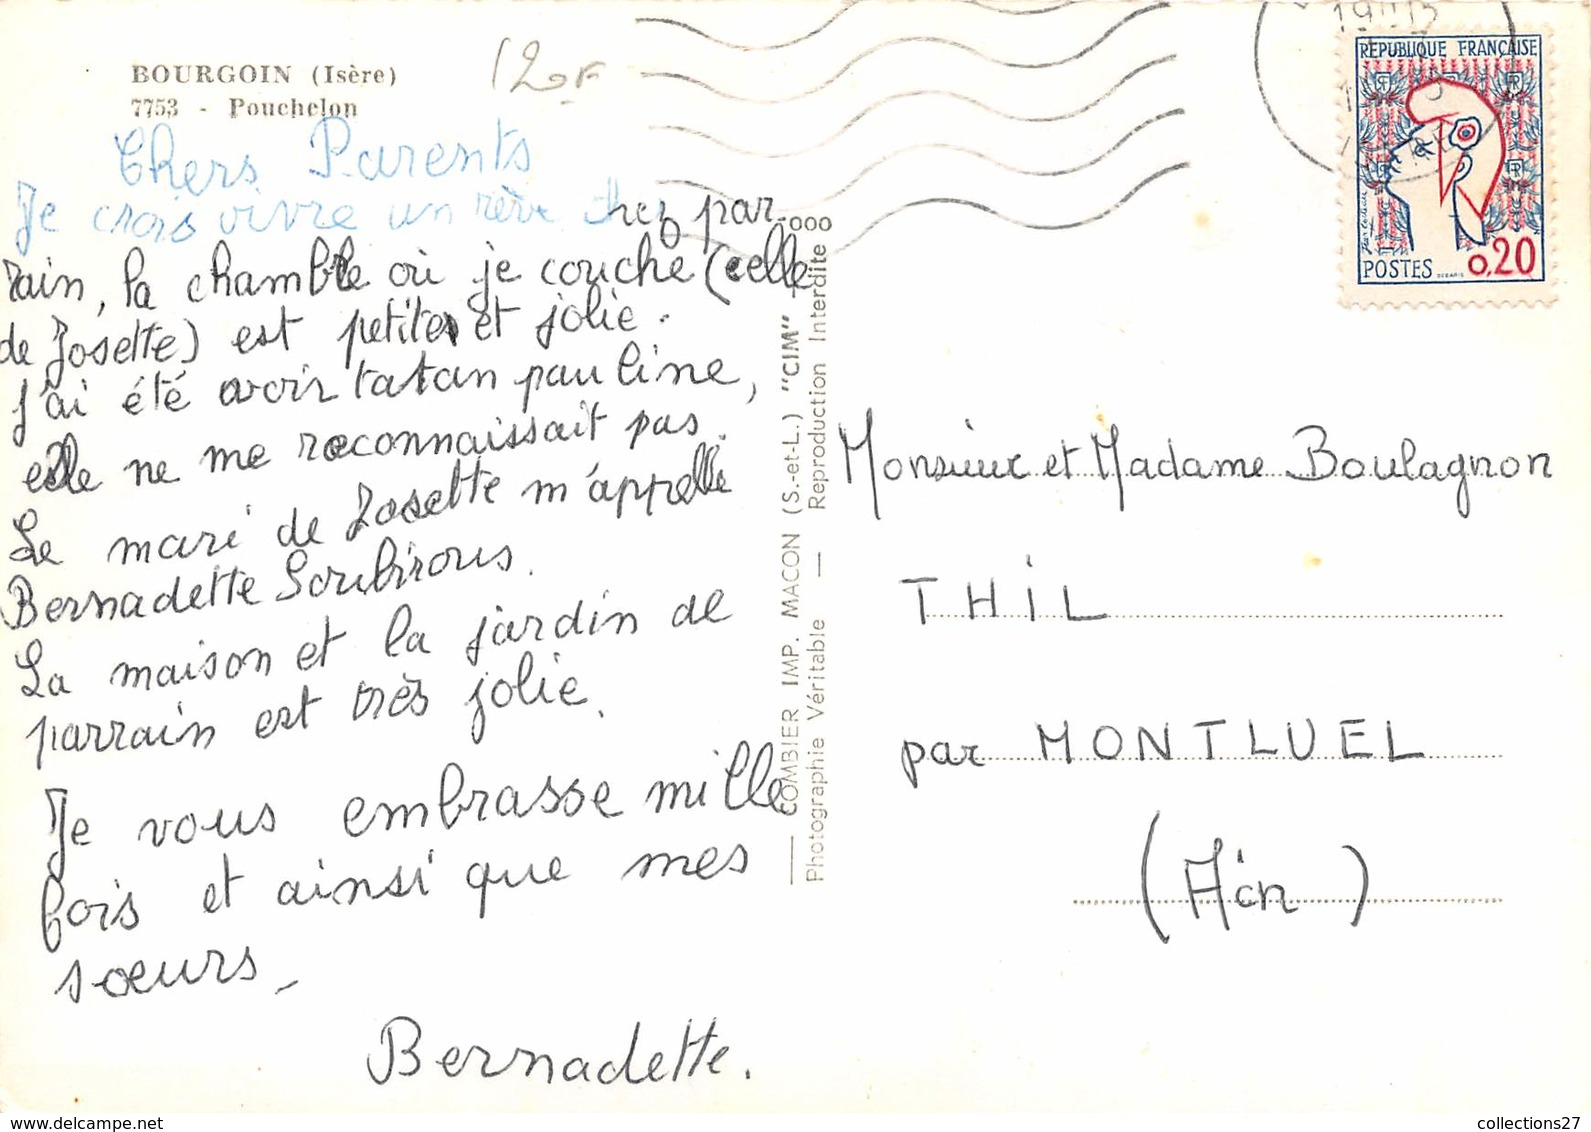 BOURGOIN (Isère)
7753 - Pouchelon
120F
Chers Parents
Je crois vivre un rêve chez par-
rain, la chambre où je couche (celle
de Josette) est petite et jolie.
J'ai été avoir tatan pauline,
elle ne me reconnaissait pas.
Le mari de Josette m'appelle
Bernadette Soubirous.
La maison et la jardin de
parrain est très jolie.
Je vous embrasse mille
fois et ainsi que mes
sœurs.
Bernadette.
— COMBIER IMP. MACON (S.-et-L.) "CIM" —
Photographie Véritable — Reproduction Interdite
REPUBLIQUE FRANÇAISE
POSTES 0,20
Monsieur et Madame Boulagnon
THiL
par MONTLUEL
(Ain)
collections27